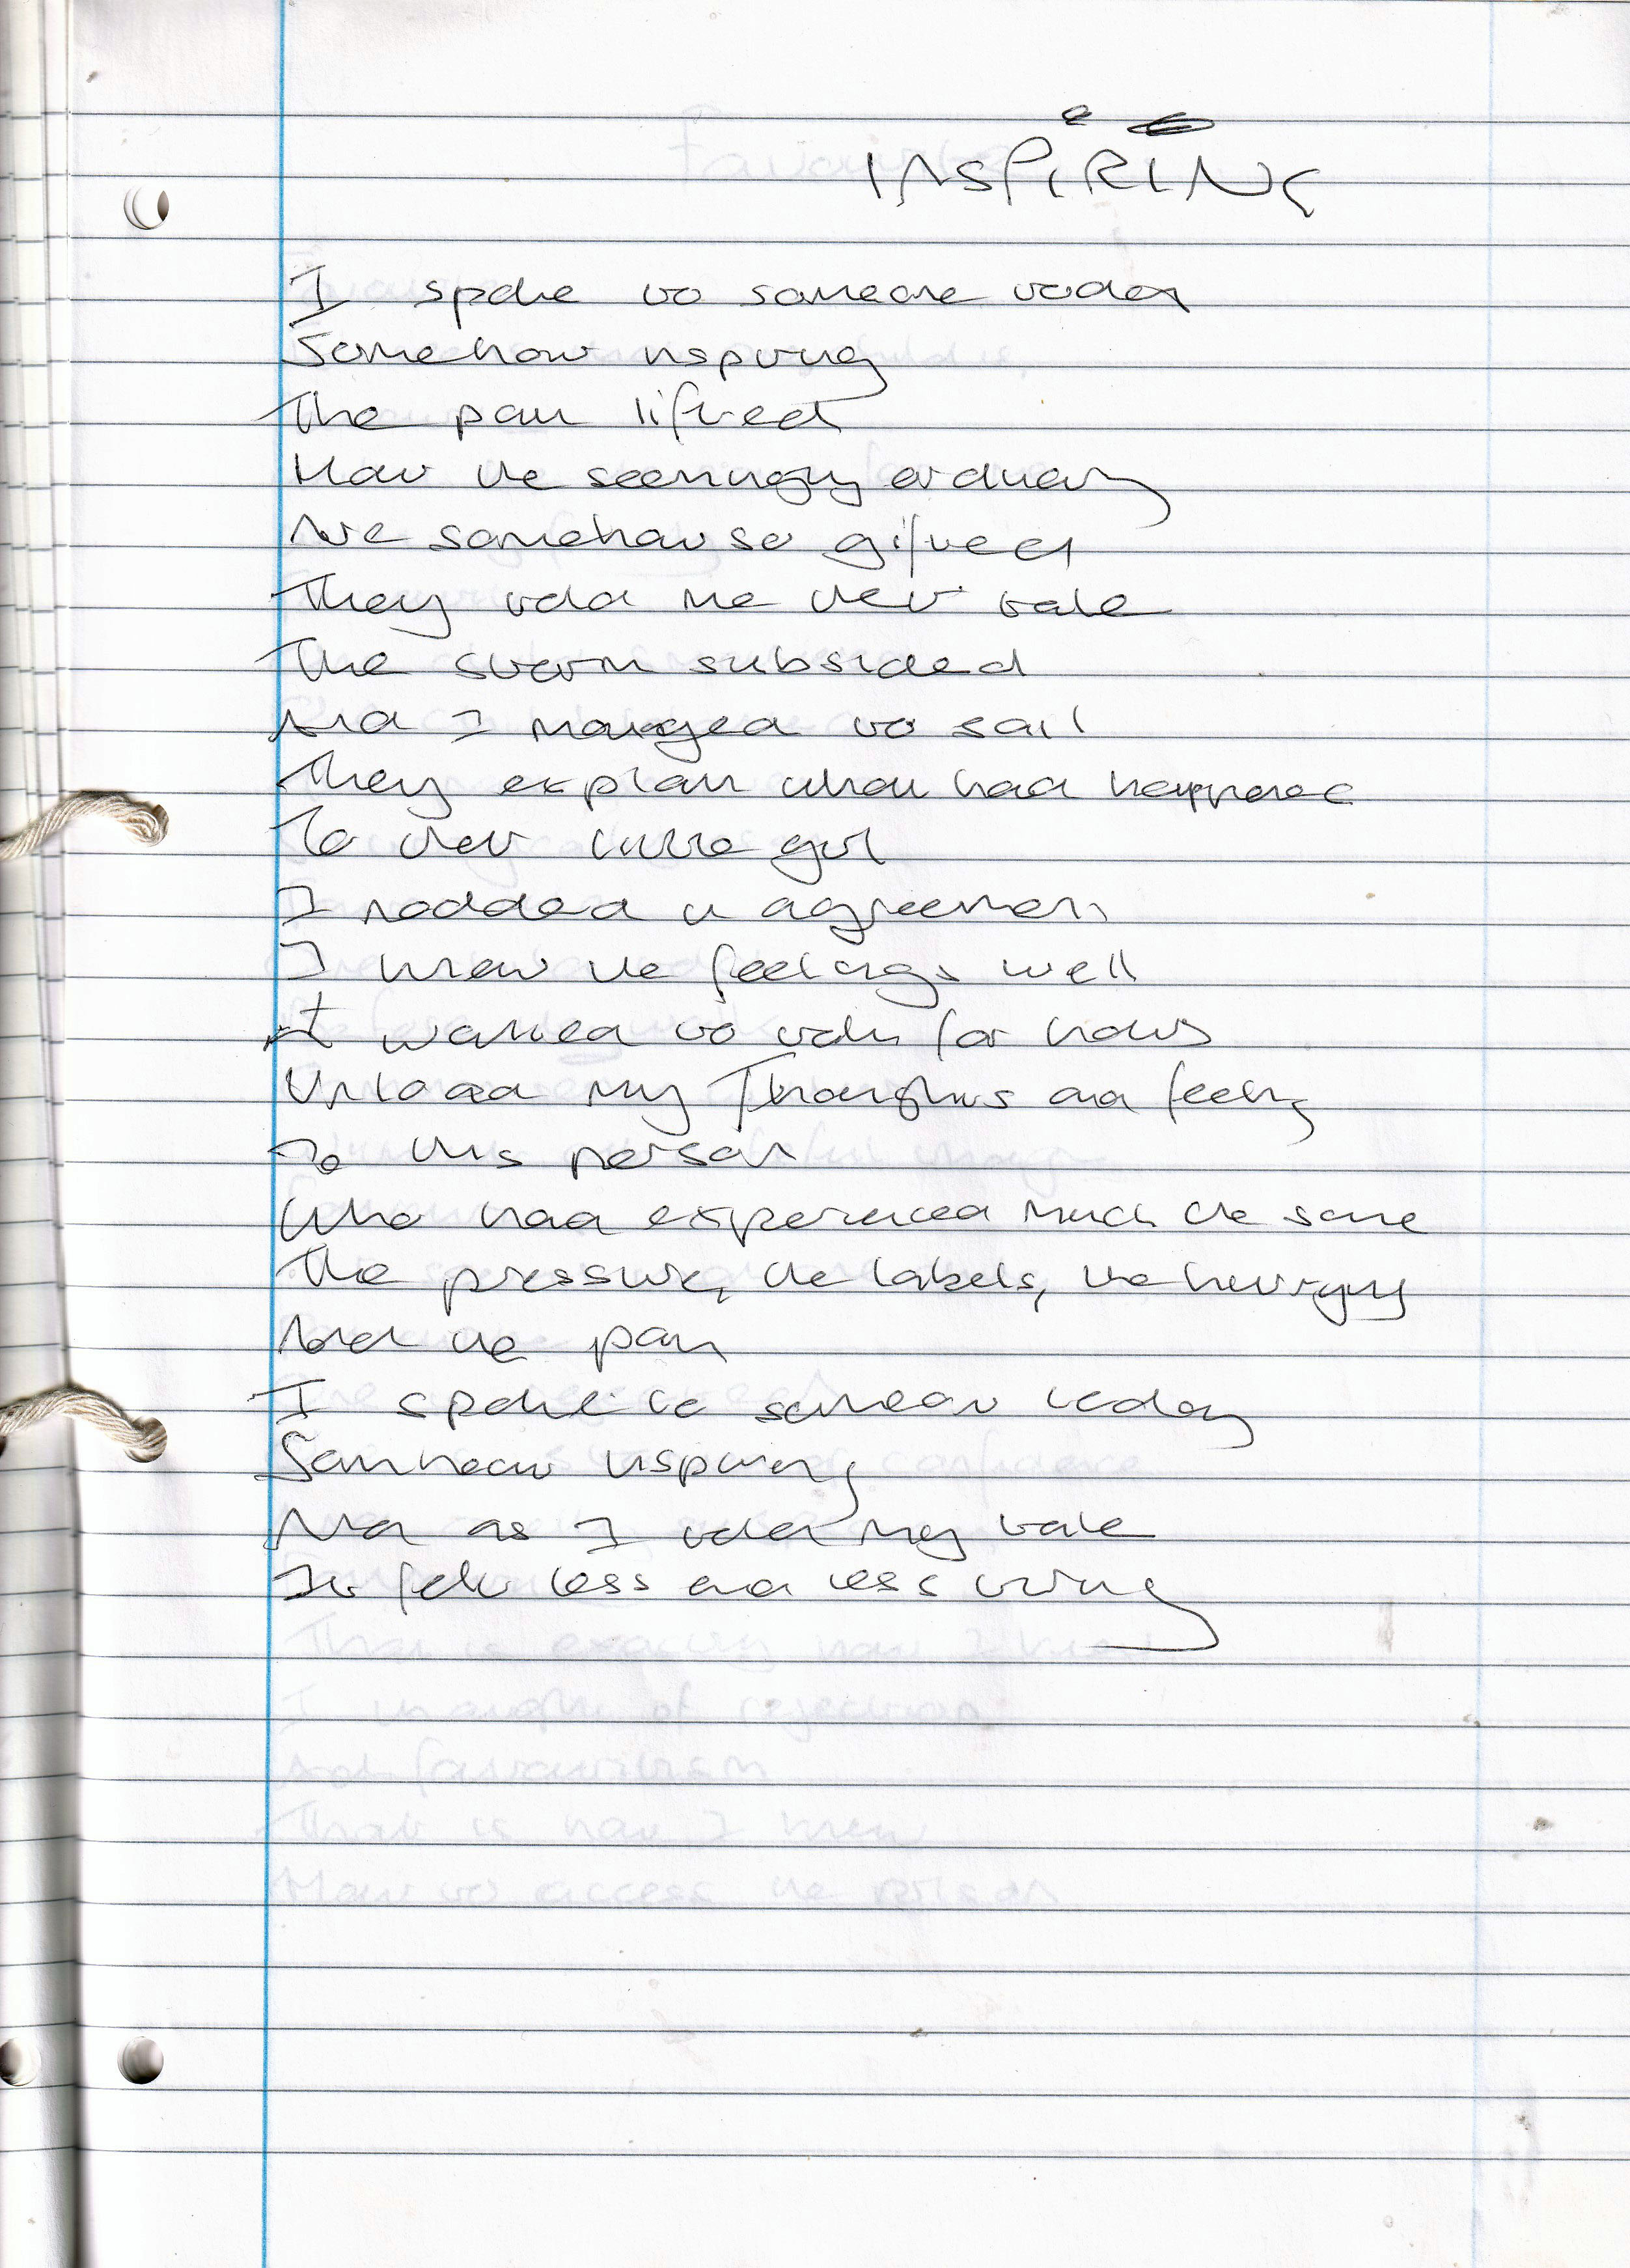 INSPIRING
I spoke to someone today
Somehow inspiring
The pain lifted
How the seemingly ordinary
Are somehow so gifted
They told me their tale
The storm subsided
And I managed to sail
They explain what had happened
To their little girl
I nodded in agreement
I knew the feelings well
I wanted to talk for hours
Unload my Thoughts and feelings
To this person
Who had experienced much the same
The pressure, the labels, the
And the pain
I spoke to someone today
Somehow inspiring
And as I told my tale
It felt less and less tiring